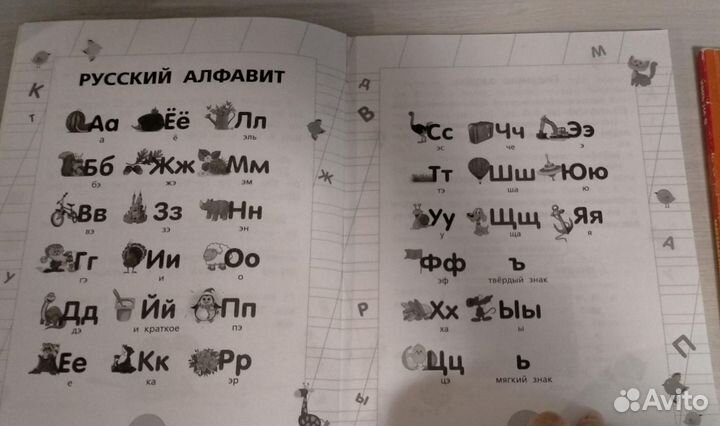 РУССКИЙ АЛФАВИТ
Аа Ёё Лл
а ё эль
Бб Жж Мм
бэ жэ эм
Вв Зз Нн
вэ зэ эн
Гг Ии Оо
гэ и о
Дд Йй Пп
дэ и краткое пэ
Ее Кк Рр
е ка эр
К
т
У
Ж
Ы
Сс Чч Ээ
эс че э
Тт Шш Юю
тэ ша ю
Уу Щщ Яя
у ща я
Фф ъ
эф твёрдый знак
Хх Ыы
ха ы
Цц ь
цэ мягкий знак
Д
В
Р
М
А
П
Avito